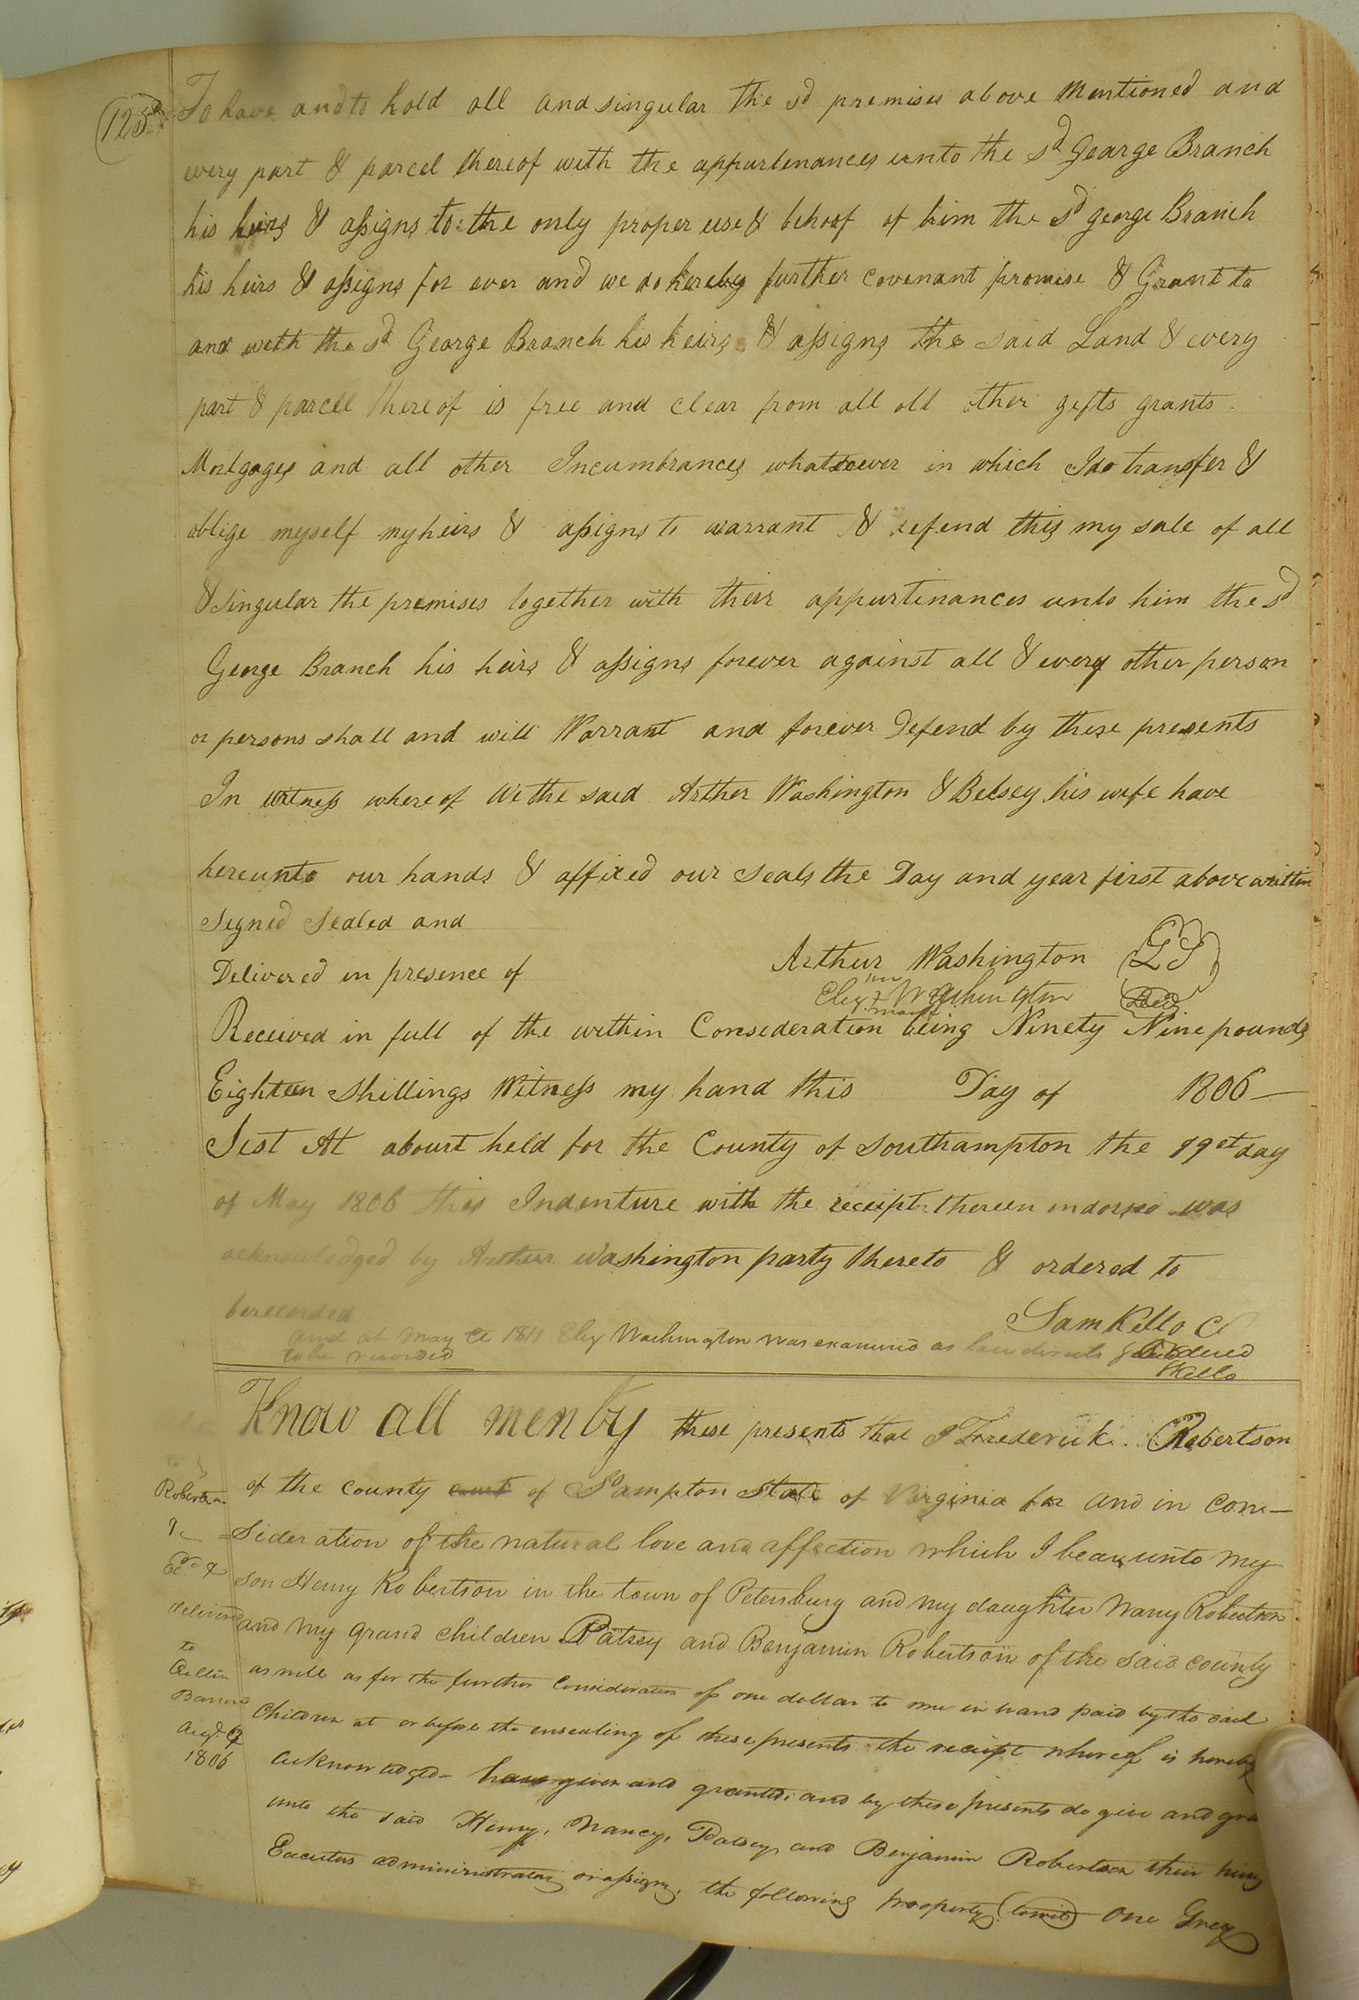 125
To have and to hold all and singular the sd premises above Mentioned and
every part & parcel thereof with the appurtenances unto the sd George Branch
his heirs & assigns to the only proper use & behoof of him the sd George Branch
his heirs & assigns for ever and we do hereby further covenant promise & Grant to
and with the sd George Branch his heirs & assigns the said Land & every
part & parcel thereof is free and clear from all all other gifts grants
Mortgages and all other Incumbrances whatsoever in which I do transfer &
oblige myself my heirs & assigns to warrant & defend this my sale of all
& singular the premises together with their appurtinances unto him the sd
George Branch his heirs & assigns forever against all & every other person
or persons shall and will Warrant and forever Defend by these presents
In witness whereof We the said Arther Washington & Betsey his wife have
hereunto our hands & affixed our seals the Day and year first above written
Signed Sealed and
Delivered in presence of
Arthur Washington LS
her
Eliz + Washington
mark
Received in full of the within Consideration being Ninety Nine pounds
Eighteen Shillings Witness my hand this Day of 1806
Test At a court held for the County of Southampton the 19st day
of May 1806 this Indenture with the receipt thereon endorsed was
acknowledged by Arthur Washington party thereto & ordered to
be recorded
Sam Kello C
and at May Ct 1811 Eliz Washington was examined as law directs & ordered
to be recorded
SKello
Know all men by these presents that I Frederick Robertson
of the county court of S'ampton State of Virginia for and in con-
sideration of the natural love and affection which I bear unto my
son Henry Robertson in the town of Petersburg and my daughter Nancy Robertson
and my grand children Patsey and Benjamin Robertson of the said county
as well as for the further Consideration of one dollar to me in hand paid by the said
Children at or before the ensealing of these presents the receipt whereof is hereby
Acknowledged have given and granted, and by these presents do give and gra
unto the said Henry, Nancy, Patsey, and Benjamin Robertson their heirs
Executors administrators or assigns, the following property (towit) One Grey
Robertson
delivered
to
1806